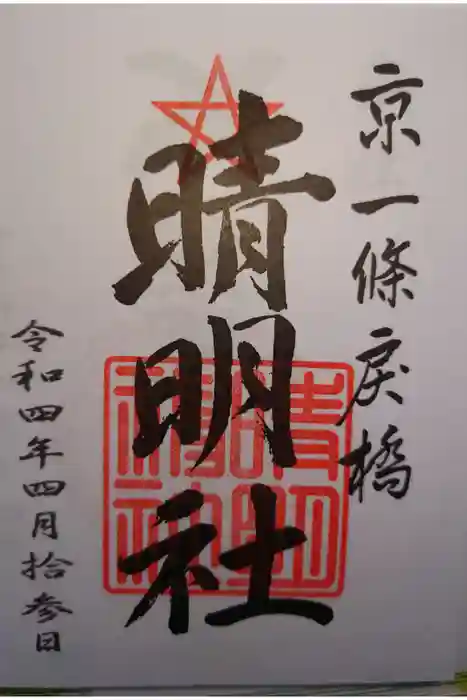 京一條戻橋
晴明社
晴明神社
令和四年四月拾参日